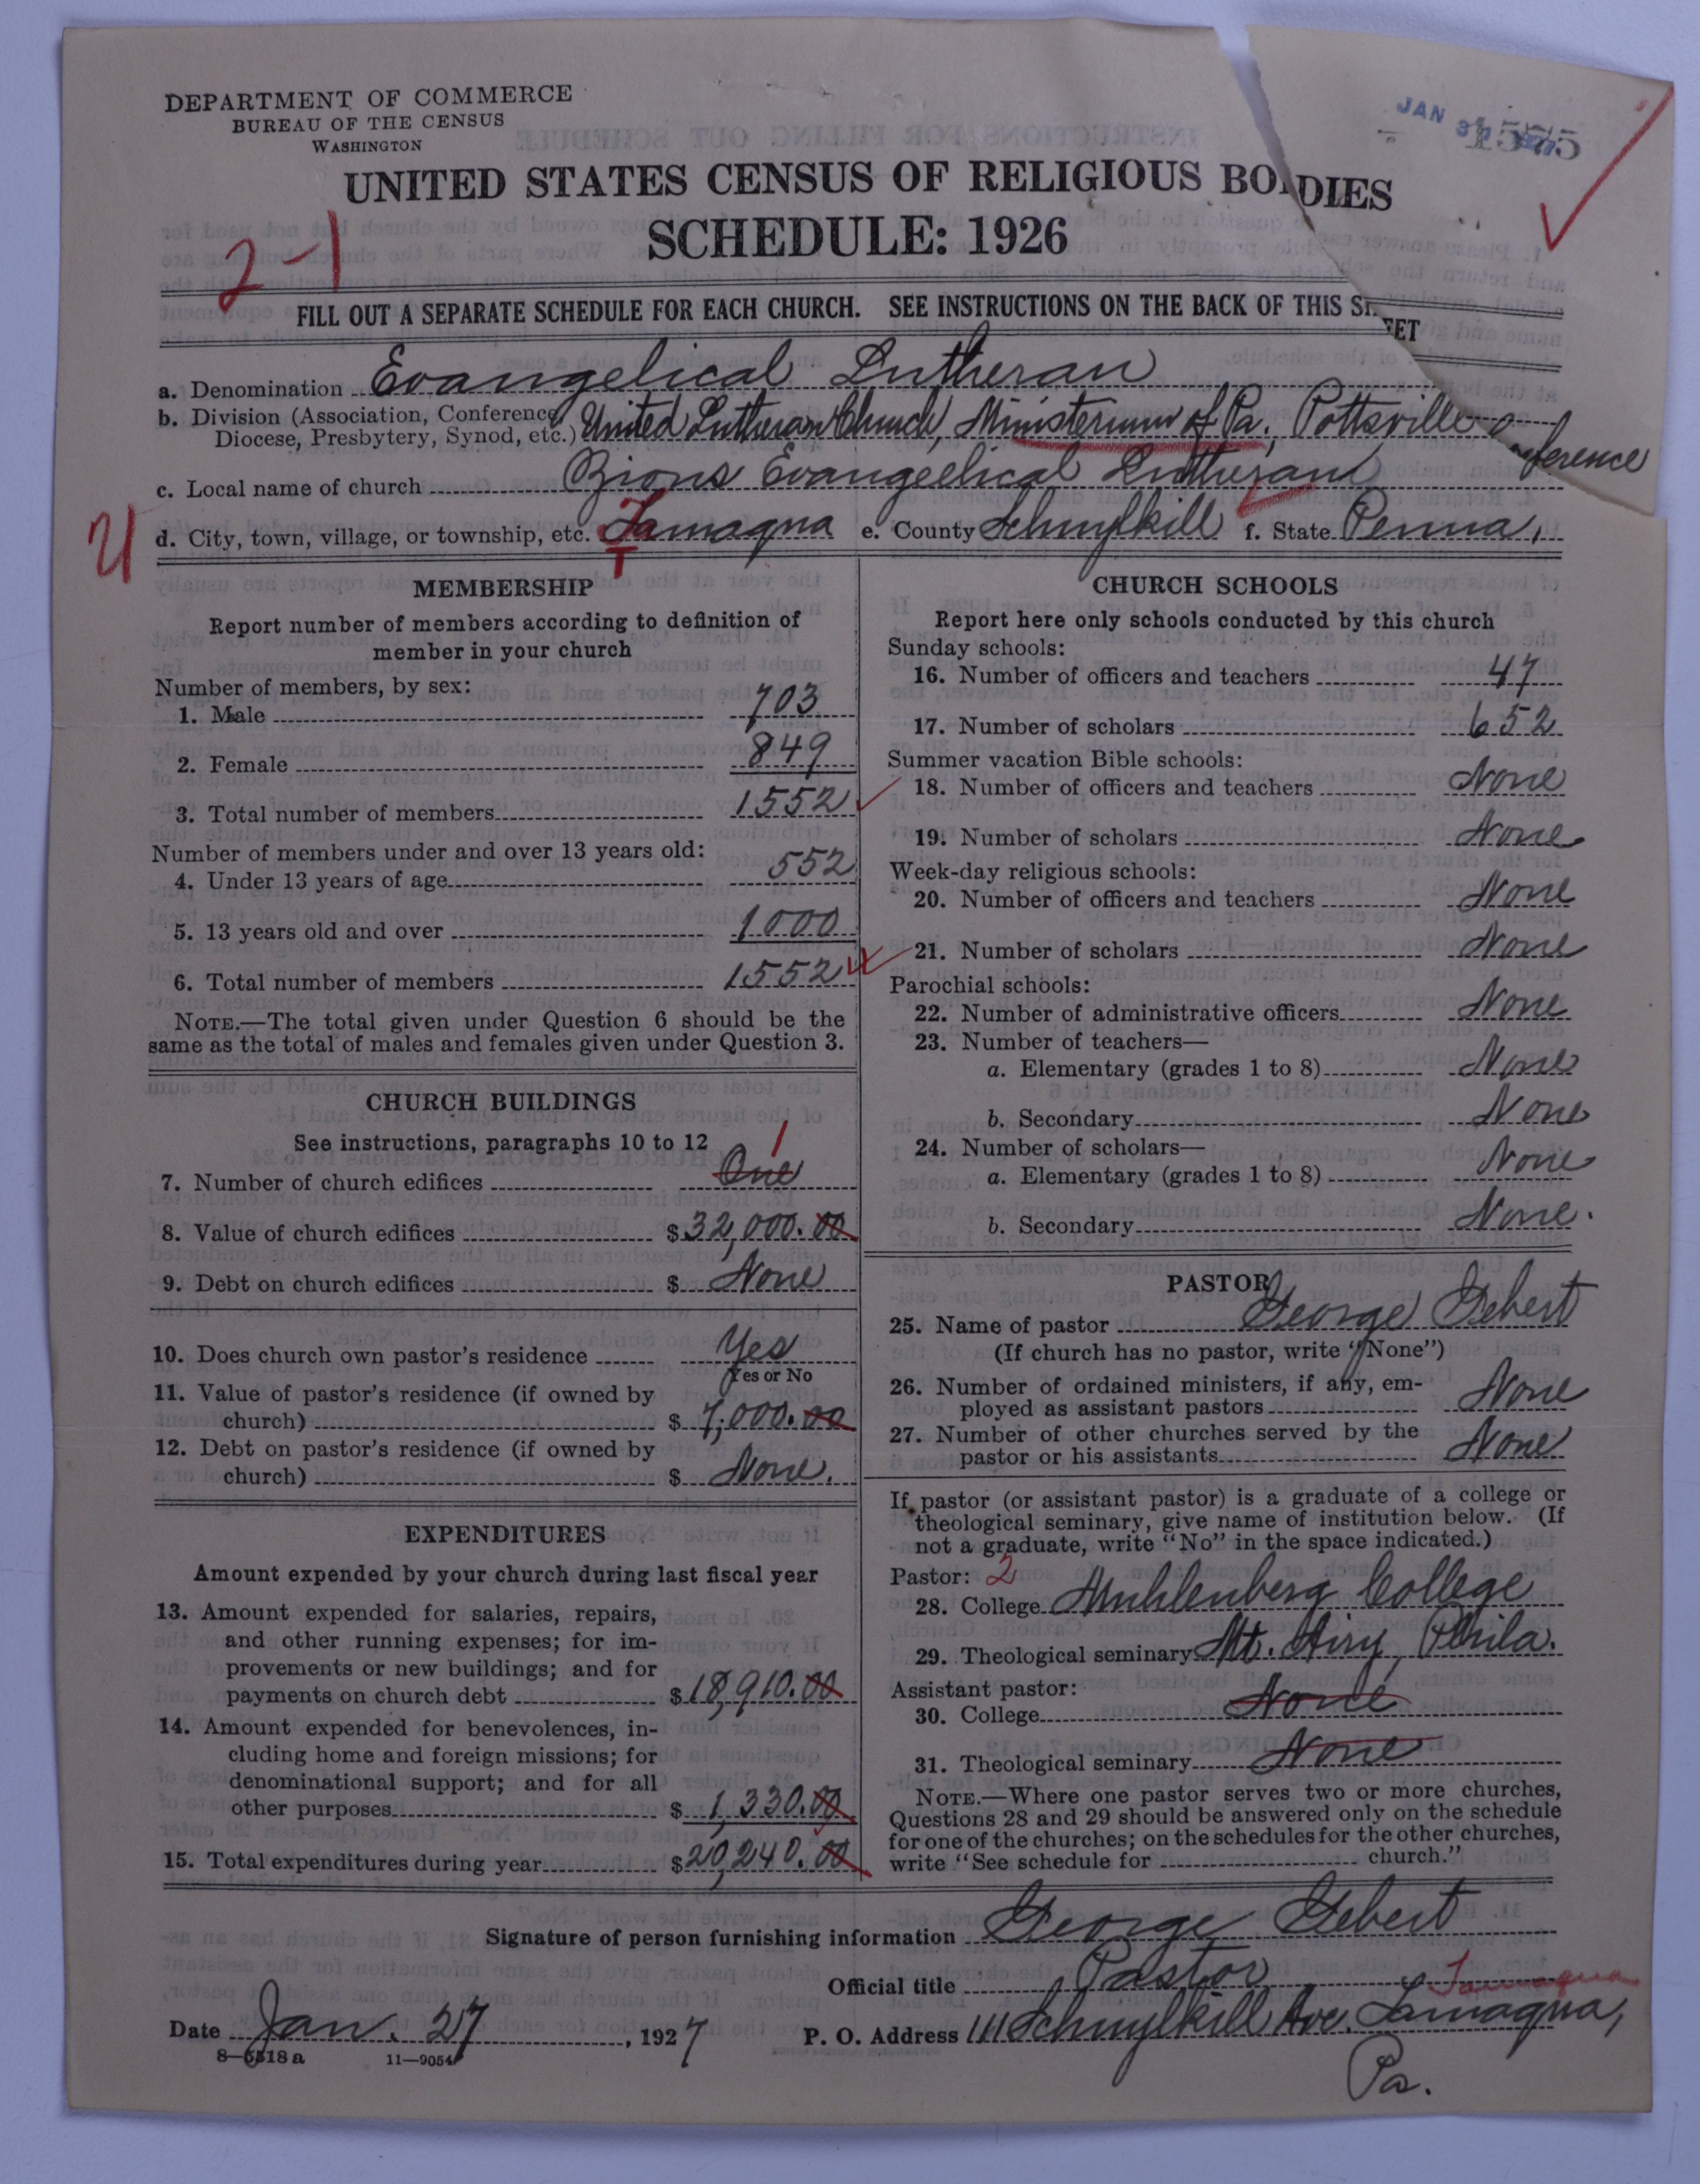 DEPARTMENT OF COMMERCE
BUREAU OF THE CENSUS
WASHINGTON
JAN 31 1927
1575
UNITED STATES CENSUS OF RELIGIOUS BODIES
SCHEDULE: 1926
2-1
FILL OUT A SEPARATE SCHEDULE FOR EACH CHURCH. SEE INSTRUCTIONS ON THE BACK OF THIS SHEET
a. Denomination Evangelical Lutheran
b. Division (Association, Conference, Diocese, Presbytery, Synod, etc.) United Lutheran Church, Ministerium of Pa., Pottsville Conference
c. Local name of church Zions Evangelical Lutheran
d. City, town, village, or township, etc. Tamaqua e. County Schuylkill f. State Penna.
MEMBERSHIP
Report number of members according to definition of
member in your church
Number of members, by sex:
1. Male 703
2. Female 849
3. Total number of members 1552
Number of members under and over 13 years old:
4. Under 13 years of age 552
5. 13 years old and over 1000
6. Total number of members 1552
NOTE.—The total given under Question 6 should be the
same as the total of males and females given under Question 3.
CHURCH BUILDINGS
See instructions, paragraphs 10 to 12
7. Number of church edifices One 1
8. Value of church edifices $32,000.00
9. Debt on church edifices $ None
10. Does church own pastor's residence Yes
Yes or No
11. Value of pastor's residence (if owned by
church) $ 7,000.00
12. Debt on pastor's residence (if owned by
church) $ None.
EXPENDITURES
Amount expended by your church during last fiscal year
13. Amount expended for salaries, repairs,
and other running expenses; for im-
provements or new buildings; and for
payments on church debt $18,910.00
14. Amount expended for benevolences, in-
cluding home and foreign missions; for
denominational support; and for all
other purposes $ 1,330.00
15. Total expenditures during year $20,240.00
CHURCH SCHOOLS
Report here only schools conducted by this church
Sunday schools:
16. Number of officers and teachers 47
17. Number of scholars 652
Summer vacation Bible schools:
18. Number of officers and teachers None
19. Number of scholars None
Week-day religious schools:
20. Number of officers and teachers None
21. Number of scholars None
Parochial schools:
22. Number of administrative officers None
23. Number of teachers—
a. Elementary (grades 1 to 8) None
b. Secondary None
24. Number of scholars—
a. Elementary (grades 1 to 8) None
b. Secondary None.
PASTOR
25. Name of pastor George Gebert
(If church has no pastor, write "None")
26. Number of ordained ministers, if any, em-
ployed as assistant pastors None
27. Number of other churches served by the
pastor or his assistants None
If pastor (or assistant pastor) is a graduate of a college or
theological seminary, give name of institution below. (If
not a graduate, write "No" in the space indicated.)
Pastor: 2
28. College Muhlenberg College
29. Theological seminary Mt. Airy, Phila.
Assistant pastor:
30. College None
31. Theological seminary None
NOTE.—Where one pastor serves two or more churches,
Questions 28 and 29 should be answered only on the schedule
for one of the churches; on the schedules for the other churches,
write "See schedule for church."
Signature of person furnishing information George Gebert
Official title Pastor
Tamaqua
Date Jan. 27, 1927 P. O. Address 111 Schuylkill Ave. Tamaqua,
Pa.
8—6518a 11—9054